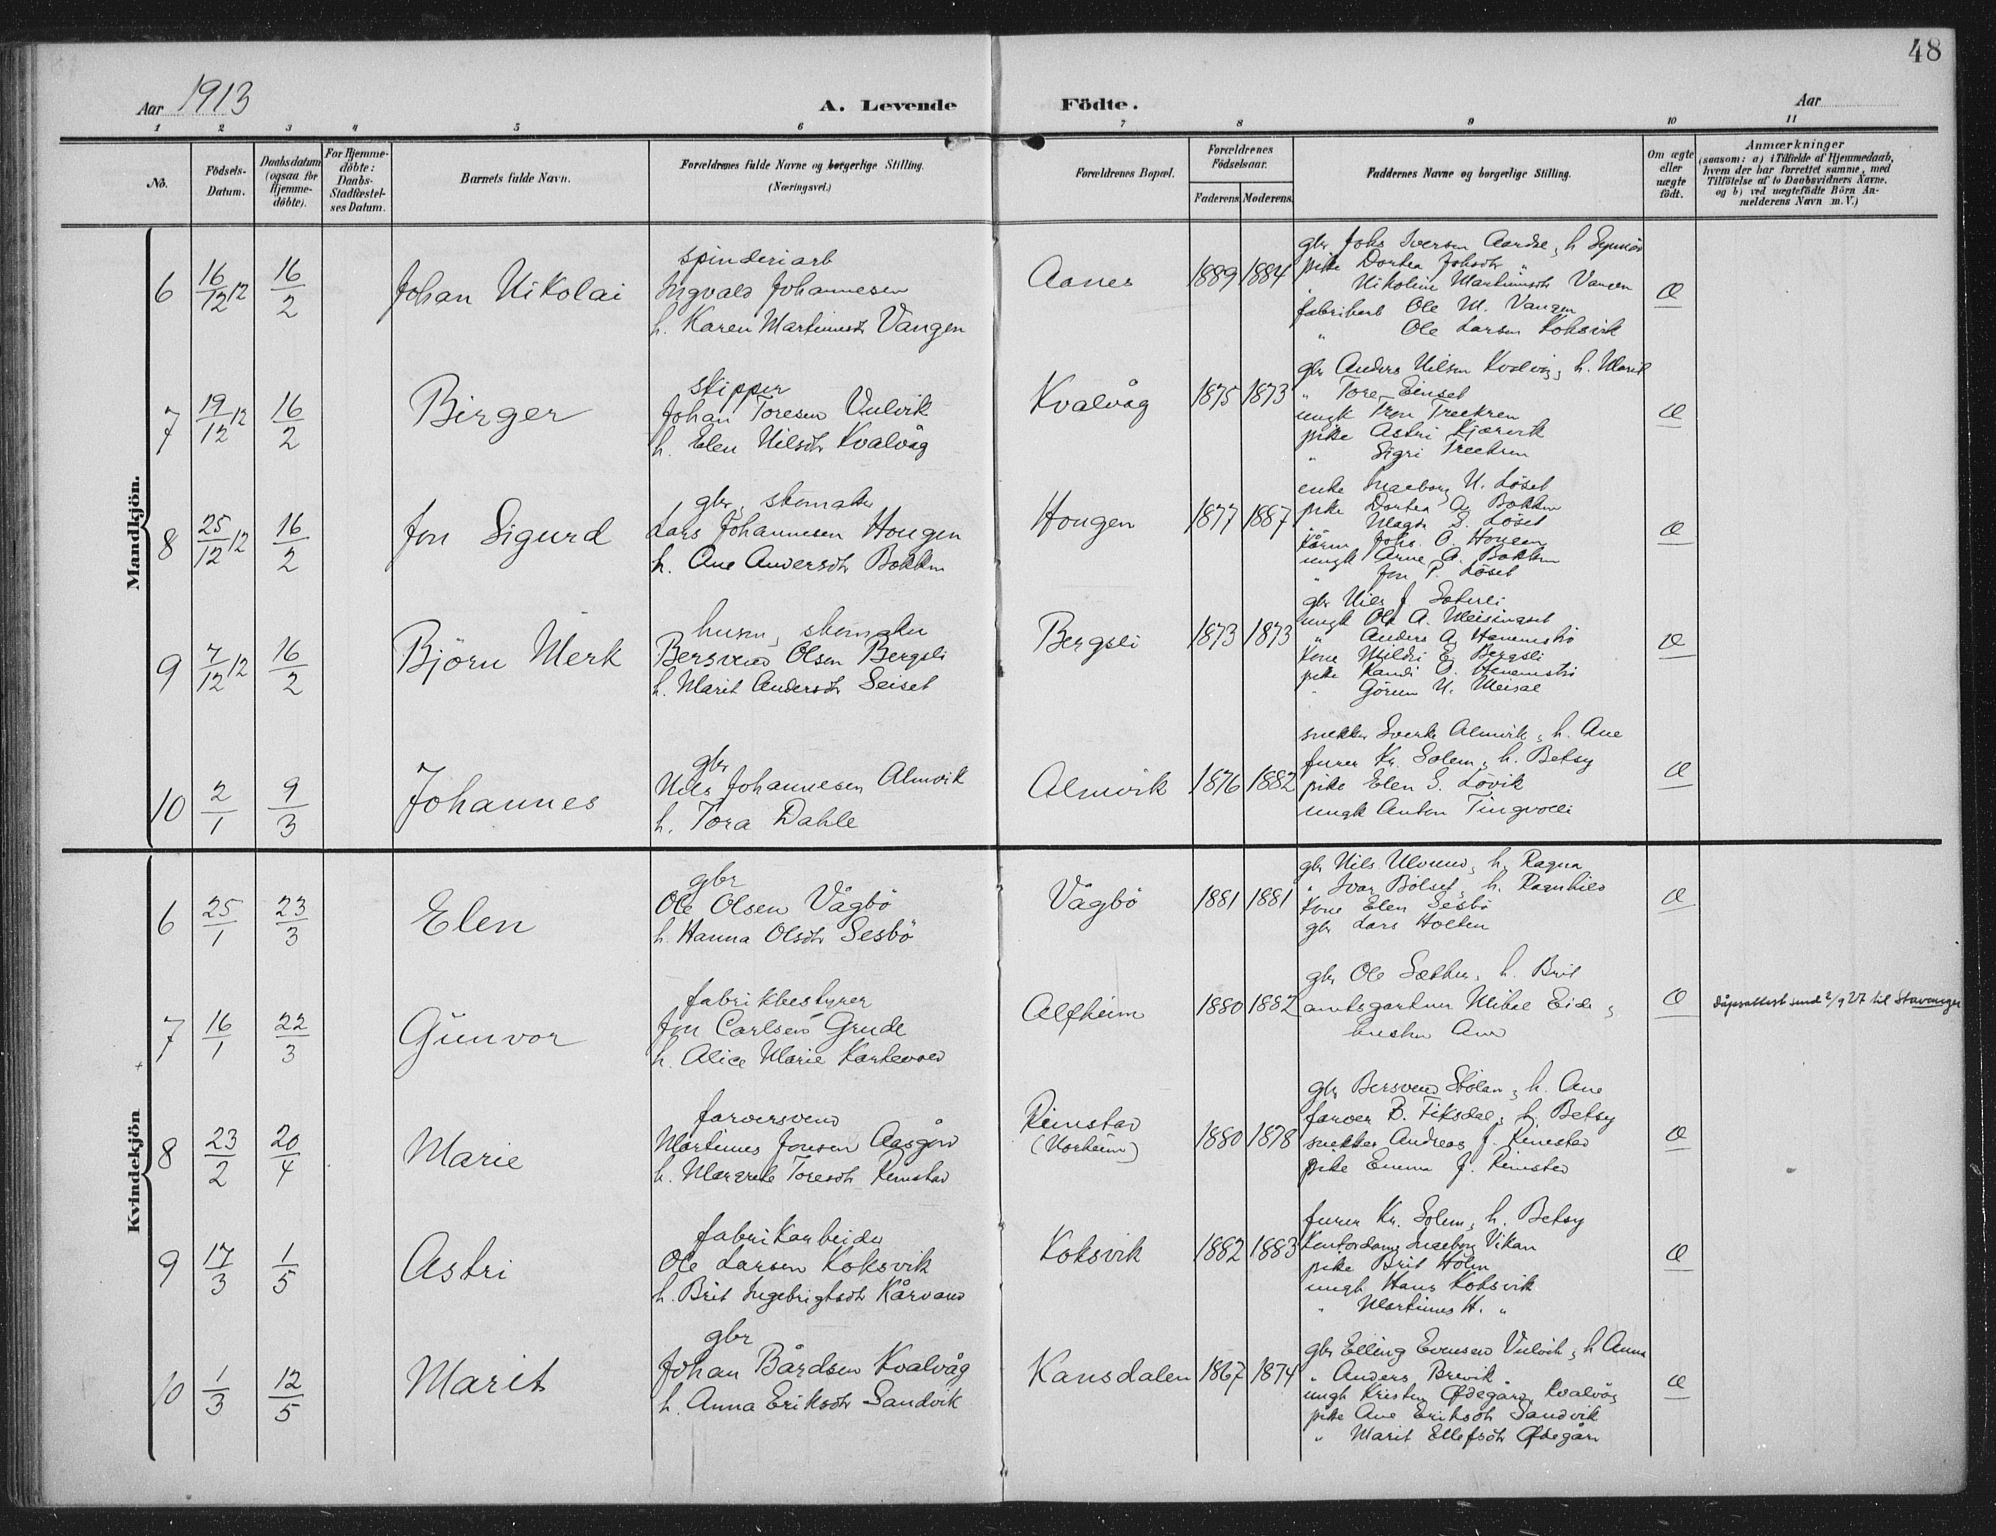 48
Aar 1913
A. Levende Födte.
Aar
1 2 3 4 5 6 7 8 9 10 11
No.
Födsels-
Datum.
Daabsdatum
(ogsaa for
Hjemme-
döbte).
For Hjemme-
döbte:
Daabs-
Stadfæstel-
ses Datum.
Barnets fulde Navn.
Forældrenes fulde Navne og borgerlige Stilling.
(Næringsvei.)
Forældrenes Bopæl.
Forældrenes
Födselsaar.
Faderens Moderens
Faddernes Navne og borgerlige Stilling.
Om ægte
eller
uægte
födt.
Anmærkninger
(saasom: a) i Tilfælde af Hjemmedaab,
hvem der har forrettet samme, med
Tilföielse af to Daabsvidners Navne,
og b) ved uægtefödte Börn An-
melderens Navn m. V.)
Mandkjön.
6 16/12 12 16/2 Johan Nikolai
spinderiarb
Ingvald Johannesen
h. Karen Martinusdtr Vangen
Aanes 1889 1884
gbr Johs Iversen Aardse, h Synnöv
pike Dortea Johsdtr "
" Nikoline Martinusdtr Vangen
fabrikarb Ole M. Vangen
" Ole Larsen Koksvik
Æ
7 19/12 12 16/2 Birger
skipper
Johan Toresen Vulvik
h. Elen Nilsdtr Kvalvåg
Kvalvåg 1875 1873
gbr Anders Nilsen Kvalvåg, h. Marit
" Tore Einset
ungk Tron Treekren
pike Astri Kjærvik
" Sigri Treekrem
Æ
8 25/12 12 16/2 Jon Sigurd
gbr, skomaker
Lars Johannesen Hougen
h. Ane Andersdtr Bakken
Hougen 1877 1887
enke Ingeborg N. Löset
pike Dortea A. Bakken
" Magda S. Löset
Johs. O. Hougen
ungk Arne A. Bakken
" Jon P. Löset
Æ
9 7/12 12 16/2 Björn Merk
husm, skomaker
Bersvend Olsen Bergsli
h. Marit Andersdtr Seiset
Bergsli 1873 1873
gbr Nils J. Soterli
ungk Ole A. Meisingset
" Anders A. Hanemsbö
kone Mildri E. Bergsli
pike Randi O. Hanemsbö
" Görun N. Meisal
Æ
10 2/1 9/3 Johannes
gbr
Nils Johannesen Almvik
h. Tora Dahle
Almvik 1876 1882
snekker Sverke Almvik, h. Ane
furer Kr. Solem, h. Betsy
pike Elen S. Lövik
ungk Anton Tingvoll
Æ
Kvindekjön
6 25/1 23/3 Elen
gbr
Ole Olsen Vågbö
h. Hanna Olsdtr Sesbö
Vågbö 1881 1881
gbr Nils Ulvund, h. Ragna
" Ivar Bölset, h. Ragnhild
kone Elen Sesbö
gbr Lars Holten
Æ
7 16/1 22/3 Gunvor
fabrikbestyrer
Jon Carlsen Grude
h. Alice Marie Kartevold
Alfheim 1880 1882
gbr Ole Sæther, h. Brit
amtsgartner Mikal Eide,
hustru Ane
Æ
Dåpsattest sendt 2/9 27 til Stavanger
8 23/2 20/4 Marie
farversvend
Martinus Jonsen Aasgård
h. Margrete Toresdtr Rimstad
Rimstad
(Norheim)
1880 1878
gbr Bersvend Stölan, h. Ane
farver B. Fiksdal, h. Betsy
snekker Andreas J. Rimstad
pike Emma J. Rimstad
Æ
9 17/3 1/5 Astri
fabrikarbeider
Ole Larsen Koksvik
h. Brit Ingebrigtsdtr Kårvand
Koksvik 1882 1883
furer Kr. Solem, h. Betsy
Kontordame Ingeborg Vikan
pike Brit Holm
ungk Hans Koksvik
" Martinus H. "
Æ
10 1/3 12/5 Marit
gbr
Johan Bårdsen Kvalvåg
h. Anna Eriksdtr Sandvik
Kansdalen 1867 1874
gbr Elling Evensen Vulvik, h Anna
" Anders Brevik "
ungk Kristen Ødegård, Kvalvåg
pike Ane Eriksdtr Sandvik
" Marit Ellefsdtr Ødegård
Æ